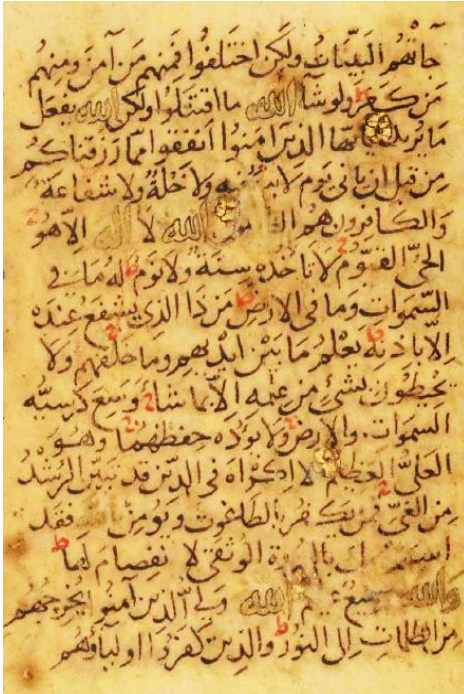 جاتهم البينات ولكن اختلفوا فمنهم من آمن ومنهم
من كفر ط ولو شآ الله ما اقتتلوا ولكن الله يفعل
ما يريد الذين امنوا انفقوا مما رزقناكم
من قبل ان ياتى يوم لا بيع فيه ولا خلة ولا شفاعة ط
والكافرون هم الله لا اله الا هو
الحى القيوم لا تاخذه سنة ولا نوم ط له ما فى
السموات وما فى الارض ط من ذا الذى يشفع عنده
الا باذنه ط يعلم ما بين ايديهم وما خلفهم ولا
يحيطون بشئ من علمه الا بما شآ وسع كرسيه
السموات والارض ولا يوده حفظهما وهو
العلى العظيم لا اكراه فى الدين قد تبين الرشد
من الغى فمن يكفر بالطاغوت ويومن بالله فقد
بالعروة الوثقى لا نفصام لها ط
والله سميع الله ولى الذين آمنوا يخرجهم
من الظلمات الى النور ط والذين كفروا اولياوهم